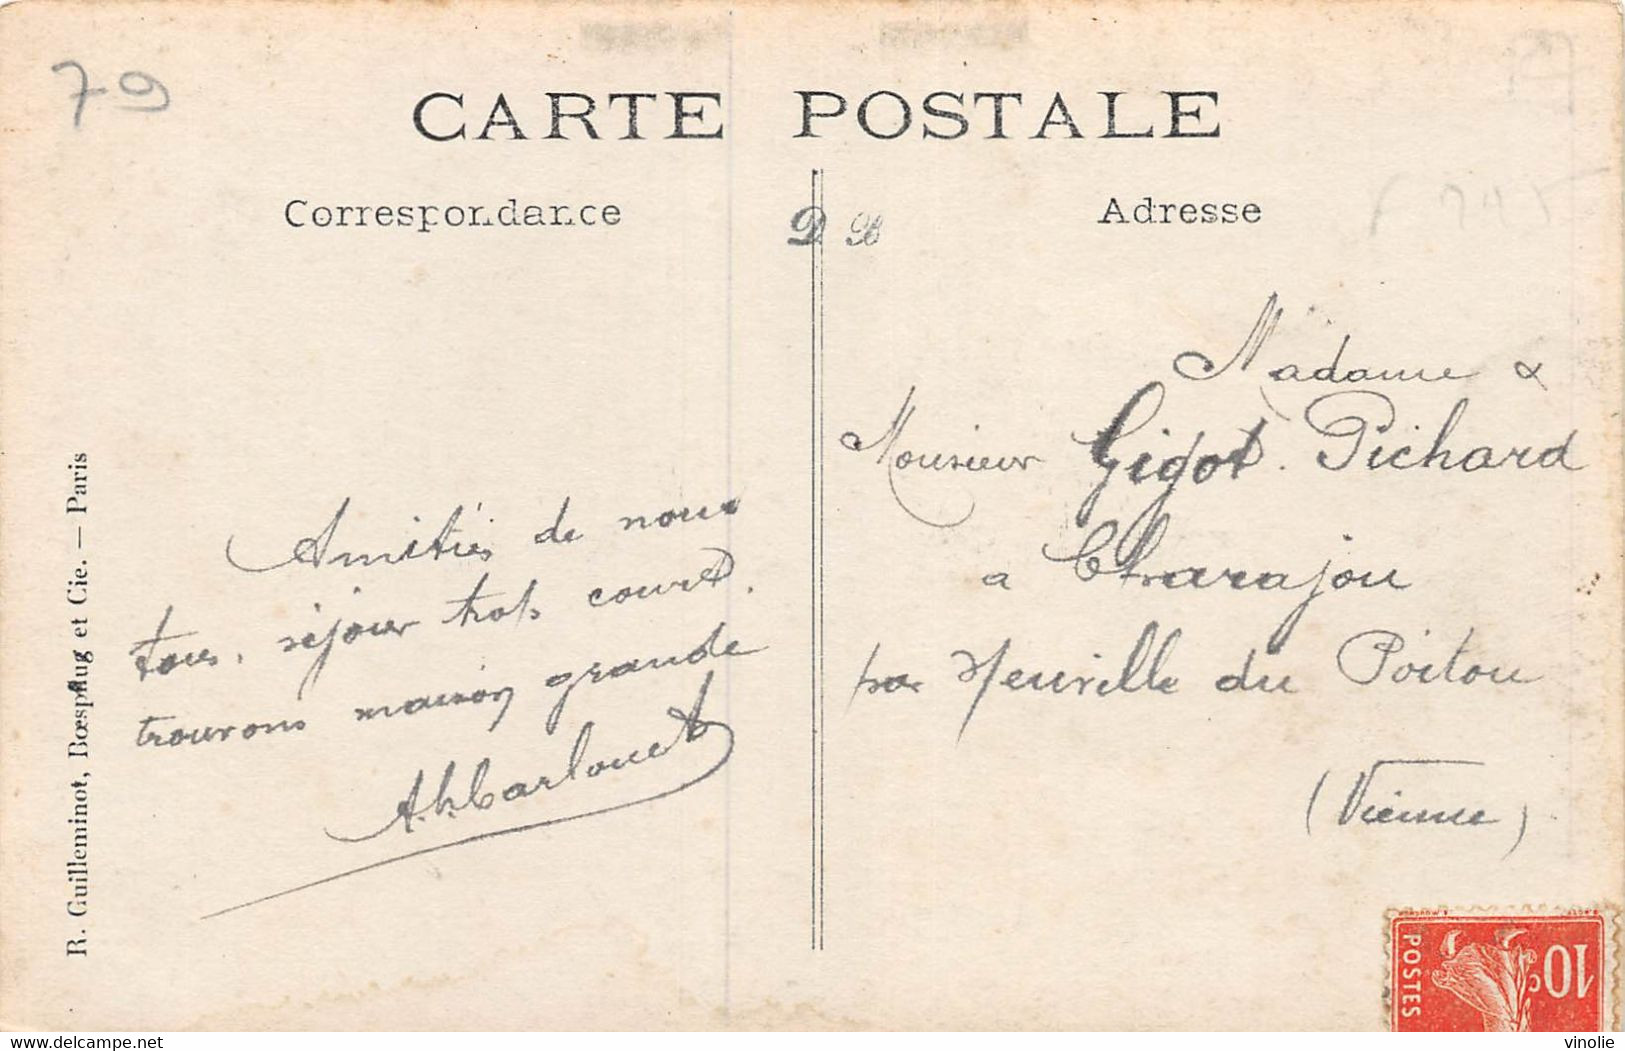 79
CARTE POSTALE
Correspondance
Adresse
D B
Madame &
Monsieur Gigot. Pichard
a Charajou
par Neuville du Poitou
(Vienne)
Amitiés de nous
tous. séjour trop court.
trouvons maison grande
R. Guilleminot, Bœspflug et Cie. — Paris
10c
POSTES
delcampe.net
vinolie